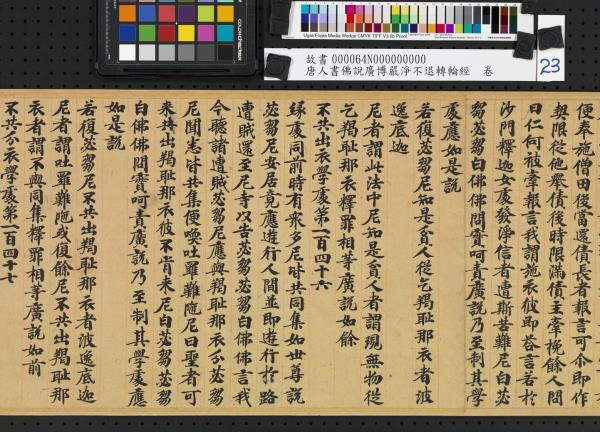 故書 000064N000000000
唐人書佛說廣博嚴淨不退轉輪經 卷
23
便奉施僧田俊當還債長者報言可尒即作
契限從他舉債後時限滿債主牽挽餘人問
曰仁何被牽報言我謂施衣彼即荅言若於
沙門釋迦女處發淨信者遭斯苦難尼白苾
芻苾芻白佛佛問實呵責廣說乃至制其學
處應如是說
若復苾芻尼知是貧人從乞羯恥那衣者波
逸底迦
尼者謂此法中尼知是貧人者謂現無物從
乞羯恥那衣釋罪相等廣說如餘
不共出衣學處第一百四十六
緣處同前時有眾多尼皆共同集如世尊說
苾芻尼安居竟應遊行人間並即遊行於路
遭賊還至尼寺以告苾芻苾芻白佛佛言我
今聽諸遭賊苾芻尼應與羯恥那衣分苾芻
尼聞悉皆共集便喚吐羅難陁尼曰聖者可
來共出羯恥那衣彼不肯來尼白苾芻苾芻
白佛佛問實呵責廣說乃至制其學處應
如是說
若復苾芻尼不共出羯恥那衣者波逸底迦
尼者謂吐羅難陁或復餘尼不共出羯恥那
衣者謂不與同集釋罪相等廣說如前
不共分衣學處第一百四十七